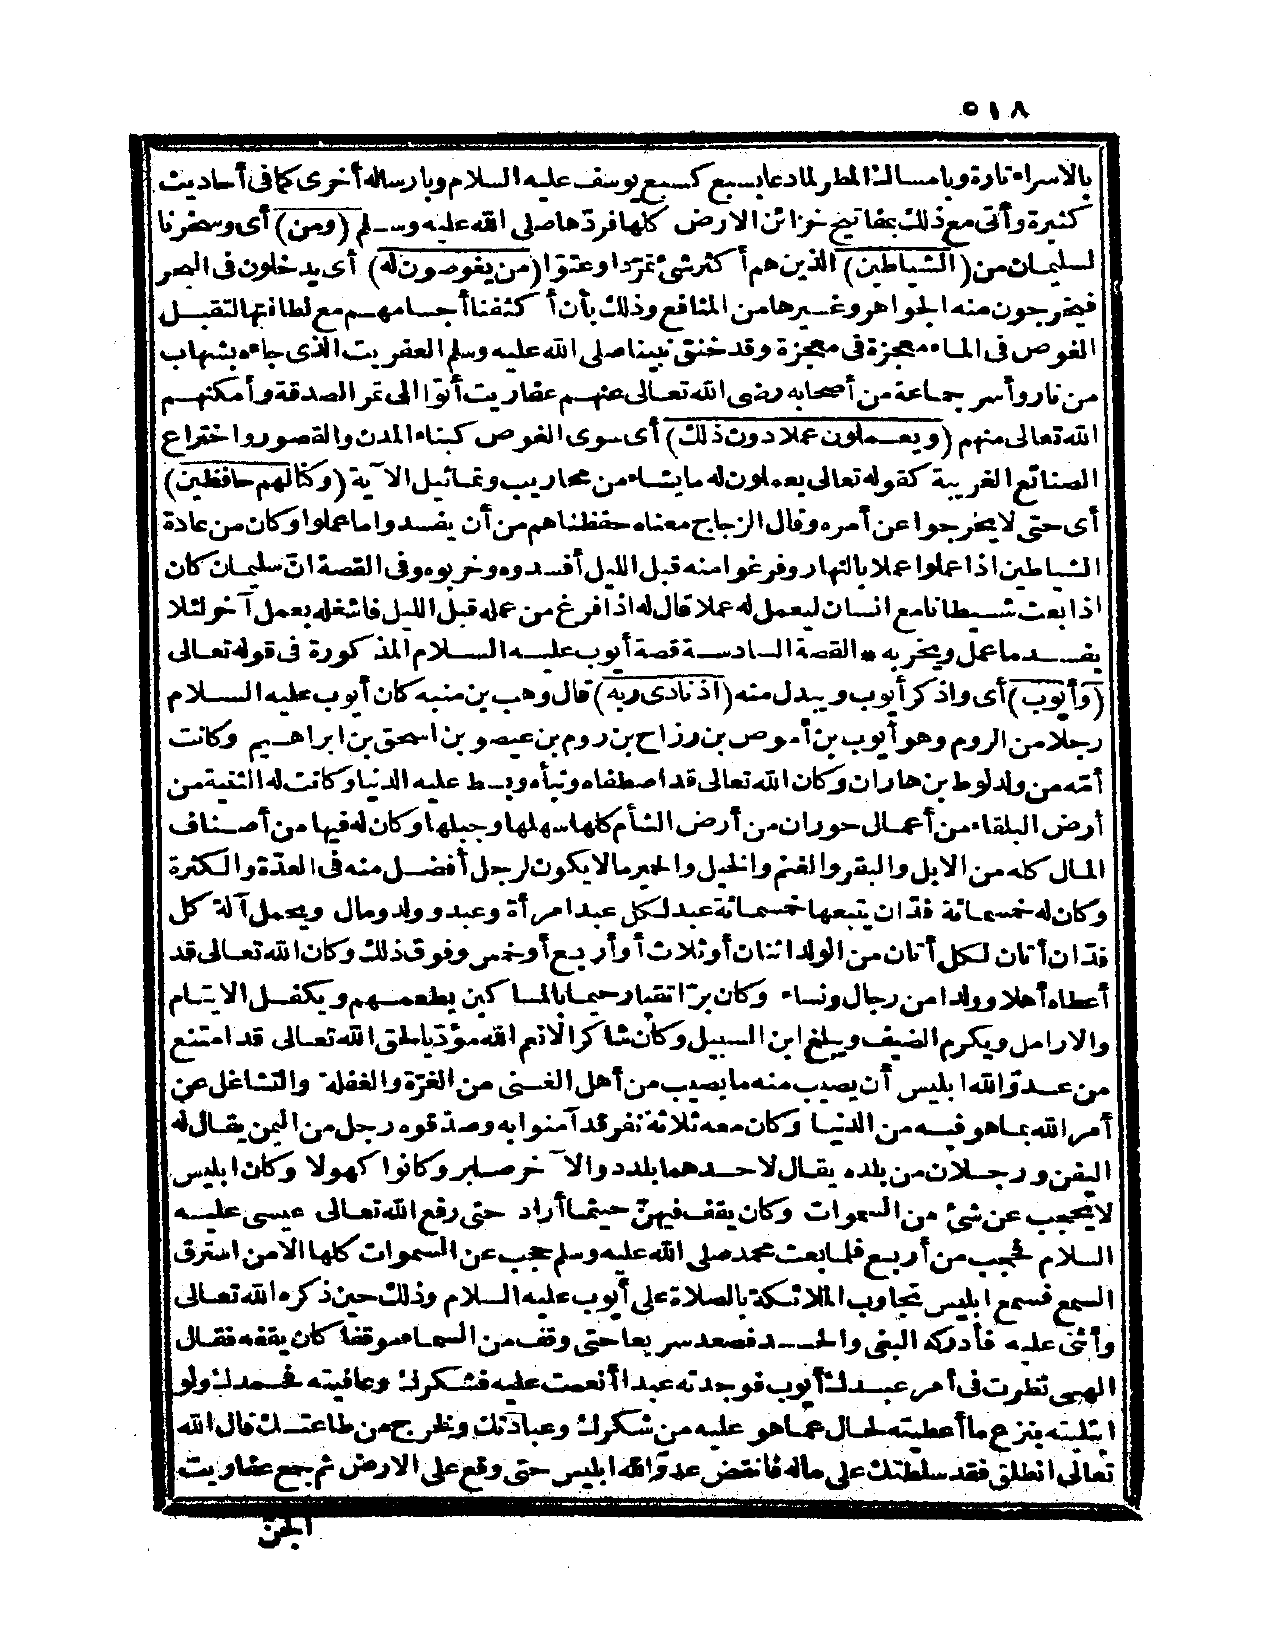 ٥١٨
بالاسراء تارة وبامساك المطر لما دعا بسبع كسبع يوسف عليه السلام وبارساله أخرى كما فى أحاديث
كثيرة وأتى مع ذلك بمفاتيح خزائن الارض كلها فردّها صلى الله عليه وسلم (ومن) أى وسخرنا
لسليمان من (الشياطين) الذين هم أكثر شئ تمرّدا وعتوّا (من يغوصون له) أى يدخلون فى البحر
فيخرجون منه الجواهر وغيرها من المنافع وذلك بأن أكثفنا أجسامهم مع لطافتها لتقبل
الغوص فى الماء معجزة فى معجزة وقد خنق نبينا صلى الله عليه وسلم العفريت الذى جاءه بشهاب
من نار وأسر جماعة من أصحابه رضى الله تعالى عنهم عفاريت أتوا الى تمر الصدقة وأمكنهم
الله تعالى منهم (ويعملون عملا دون ذلك) أى سوى الغوص كبناء المدن والقصور واختراع
الصنائع الغريبة كقوله تعالى يعملون له ما يشاء من محاريب وتماثيل الآية (وكالهم حافظين)
أى حتى لا يخرجوا عن أمره وقال الزجاج معناه حفظناهم من أن يفسدوا ما عملوا وكان من عادة
الشياطين اذا عملوا عملا بالنهار وفرغوا منه قبل الليل أفسدوه وخربوه وفى القصة انّ سليمان كان
اذا بعث شيطانا مع انسان ليعمل له عملا قال له اذا فرغ من عمله قبل الليل فاشغله بعمل آخر لئلا
يفسد ما عمل ويخربه * القصة السادسة قصة أيوب عليه السلام المذكورة فى قوله تعالى
(وأيوب) أى واذكر أيوب ويبدل منه (اذ نادى ربه) قال وهب بن منبه كان أيوب عليه السلام
رجلا من الروم وهو أيوب بن أموص بن رزاح بن روم بن عيصو بن اسحق بن ابراهيم وكانت
أمّه من ولد لوط بن هاران وكان الله تعالى قد اصطفاه ونبأه وبسط عليه الدنيا وكانت له الثنية من
أرض البلقاء من أعمال حوران من أرض الشأم كلها سهلها وجبلها وكان له فيها من أصناف
المال كله من الابل والبقر والغنم والخيل والحمير ما لا يكون لرجل أفضل منه فى العدّة والكثرة
وكان له خمسمائة فدّان يتبعها خمسمائة عبد لكل عبد امرأة وعبد وولد ومال ويحمل آلة كل
فدّان أتان لكل أتان من الولد اثنان أو ثلاث أو أربع أو خمس وفوق ذلك وكان الله تعالى قد
أعطاه أهلا وولدا من رجال ونساء وكان برّا تقيا رحيما بالمساكين يطعمهم ويكفل الايتام
والارامل ويكرم الضيف ويبلغ ابن السبيل وكان شاكرا لانعم الله مؤدّيا لحق الله تعالى قد امتنع
من عدوّ الله ابليس أن يصيب منه ما يصيب من أهل الغنى من الغرّة والغفلة والتشاغل عن
أمر الله بما هو فيه من الدنيا وكان معه ثلاثة نفر قد آمنوا به وصدّقوه رجل من اليمن يقال له
اليفن ورجلان من بلده يقال لاحدهما بلدد والآخر صابر وكانوا كهولا وكان ابليس
لا يحجب عن شئ من السموات وكان يقف فيهنّ حيثما أراد حتى رفع الله تعالى عيسى عليه
السلام فحجب من أربع فلما بعث محمد صلى الله عليه وسلم حجب عن السموات كلها الا من استرق
السمع فسمع ابليس تجاوب الملائكة بالصلاة على أيوب عليه السلام وذلك حين ذكره الله تعالى
وأثنى عليه فأدركه البغى والحسد فصعد سريعا حتى وقف من السماء موقفا كان يقفه فقال
الهى نظرت فى أمر عبدك أيوب فوجدته عبدا أنعمت عليه فشكرك وعافيته فحمدك ولو
ابتليته بنزع ما أعطيته لحال عما هو عليه من شكرك وعبادتك ولخرج من طاعتك قال الله
تعالى انطلق فقد سلطتك على ماله فانقض عدوّ الله ابليس حتى وقع على الارض ثم جمع عفاريت
الجنّ